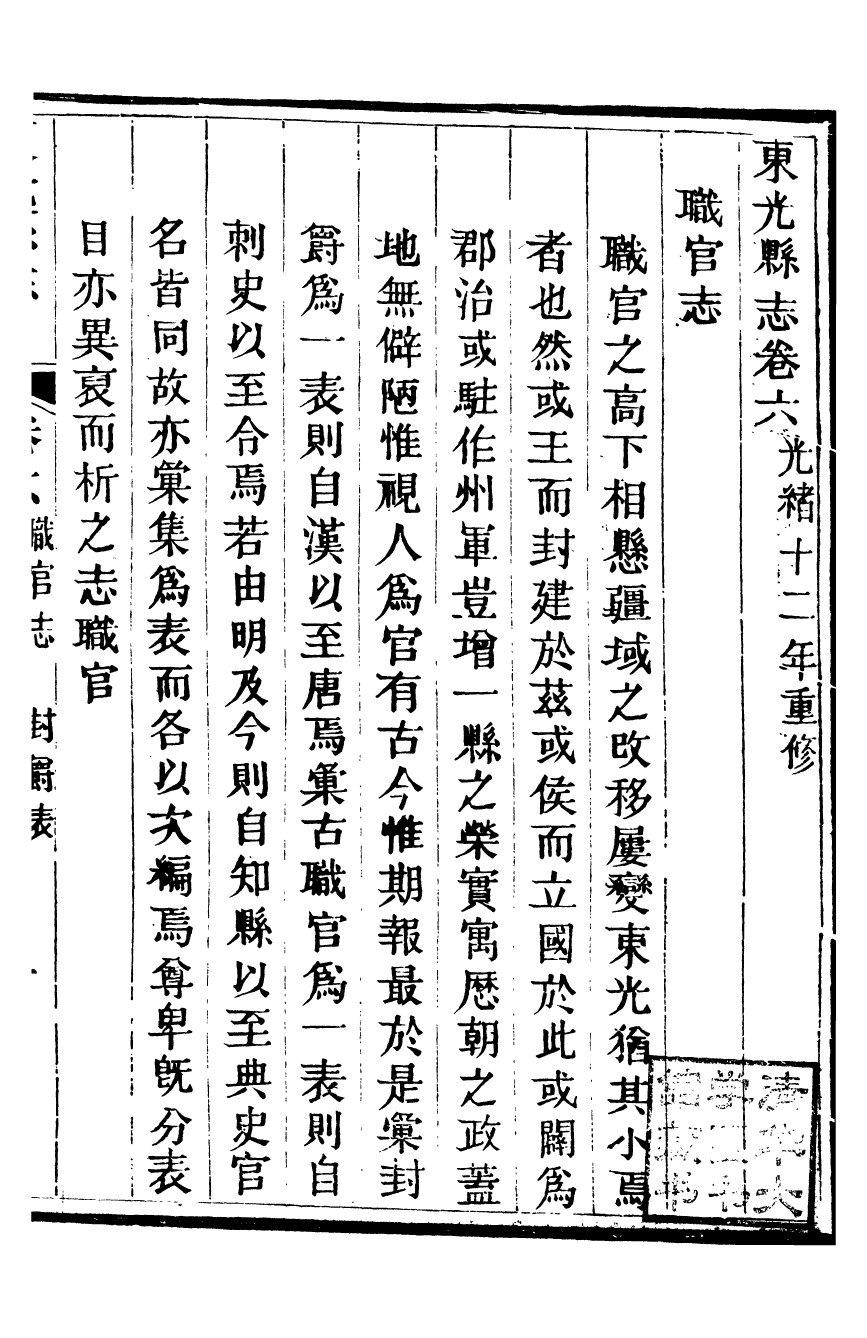 東光縣志卷六光緒十二年重修
職官志
職官之高下相懸疆域之改移屢變東光猶其小焉
者也然或王而封建於茲或侯而立國於此或闢為
郡治或駐作州軍豈增一縣之榮實寓歷朝之政蓋
地無僻陋惟視人為官有古今惟期報最於是彙封
爵為一表則自漢以至唐焉彙古職官為一表則自
刺史以至令焉若由明及今則自知縣以至典史官
名皆同故亦彙集為表而各以次編焉尊卑既分表
目亦異裒而析之志職官
卷六職官志 封爵表
清華大
學圖書
館藏書